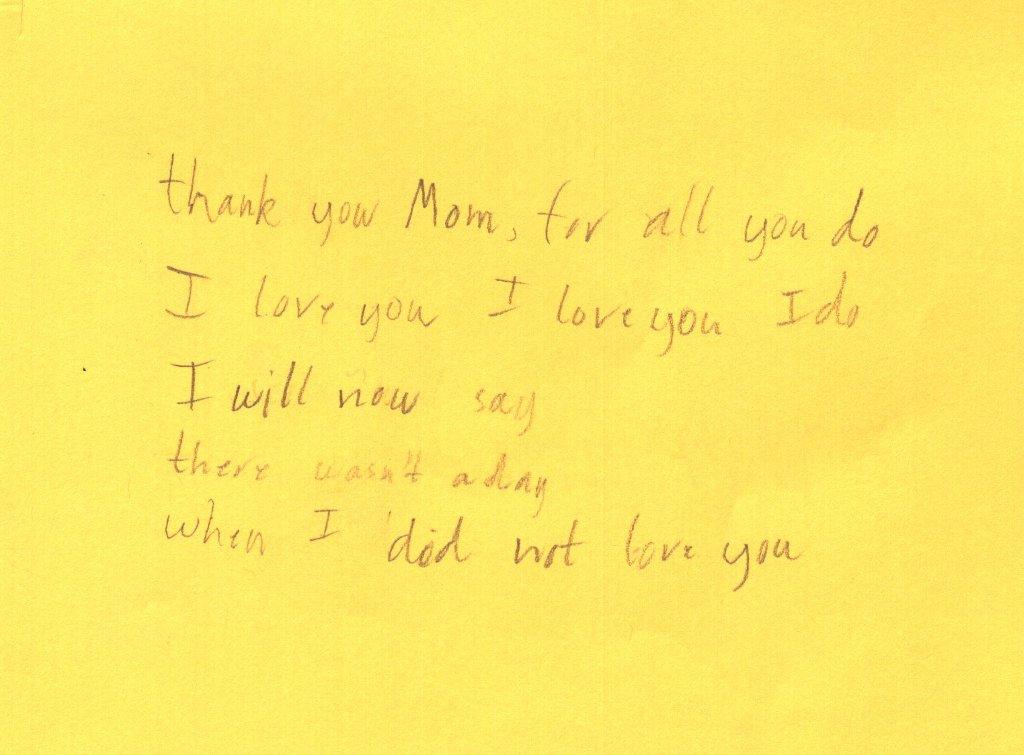 thank you Mom, for all you do
I love you I love you I do
I will now say
there wasn't a day
when I did not love you